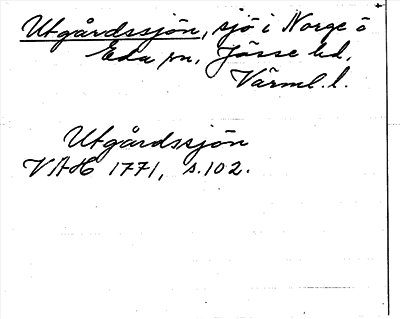 Utgårdssjön, sjö i Norge ö
Eda sn, Jösse hd,
Värml. l.
Utgårdssjön
VAH 1771, s. 102.